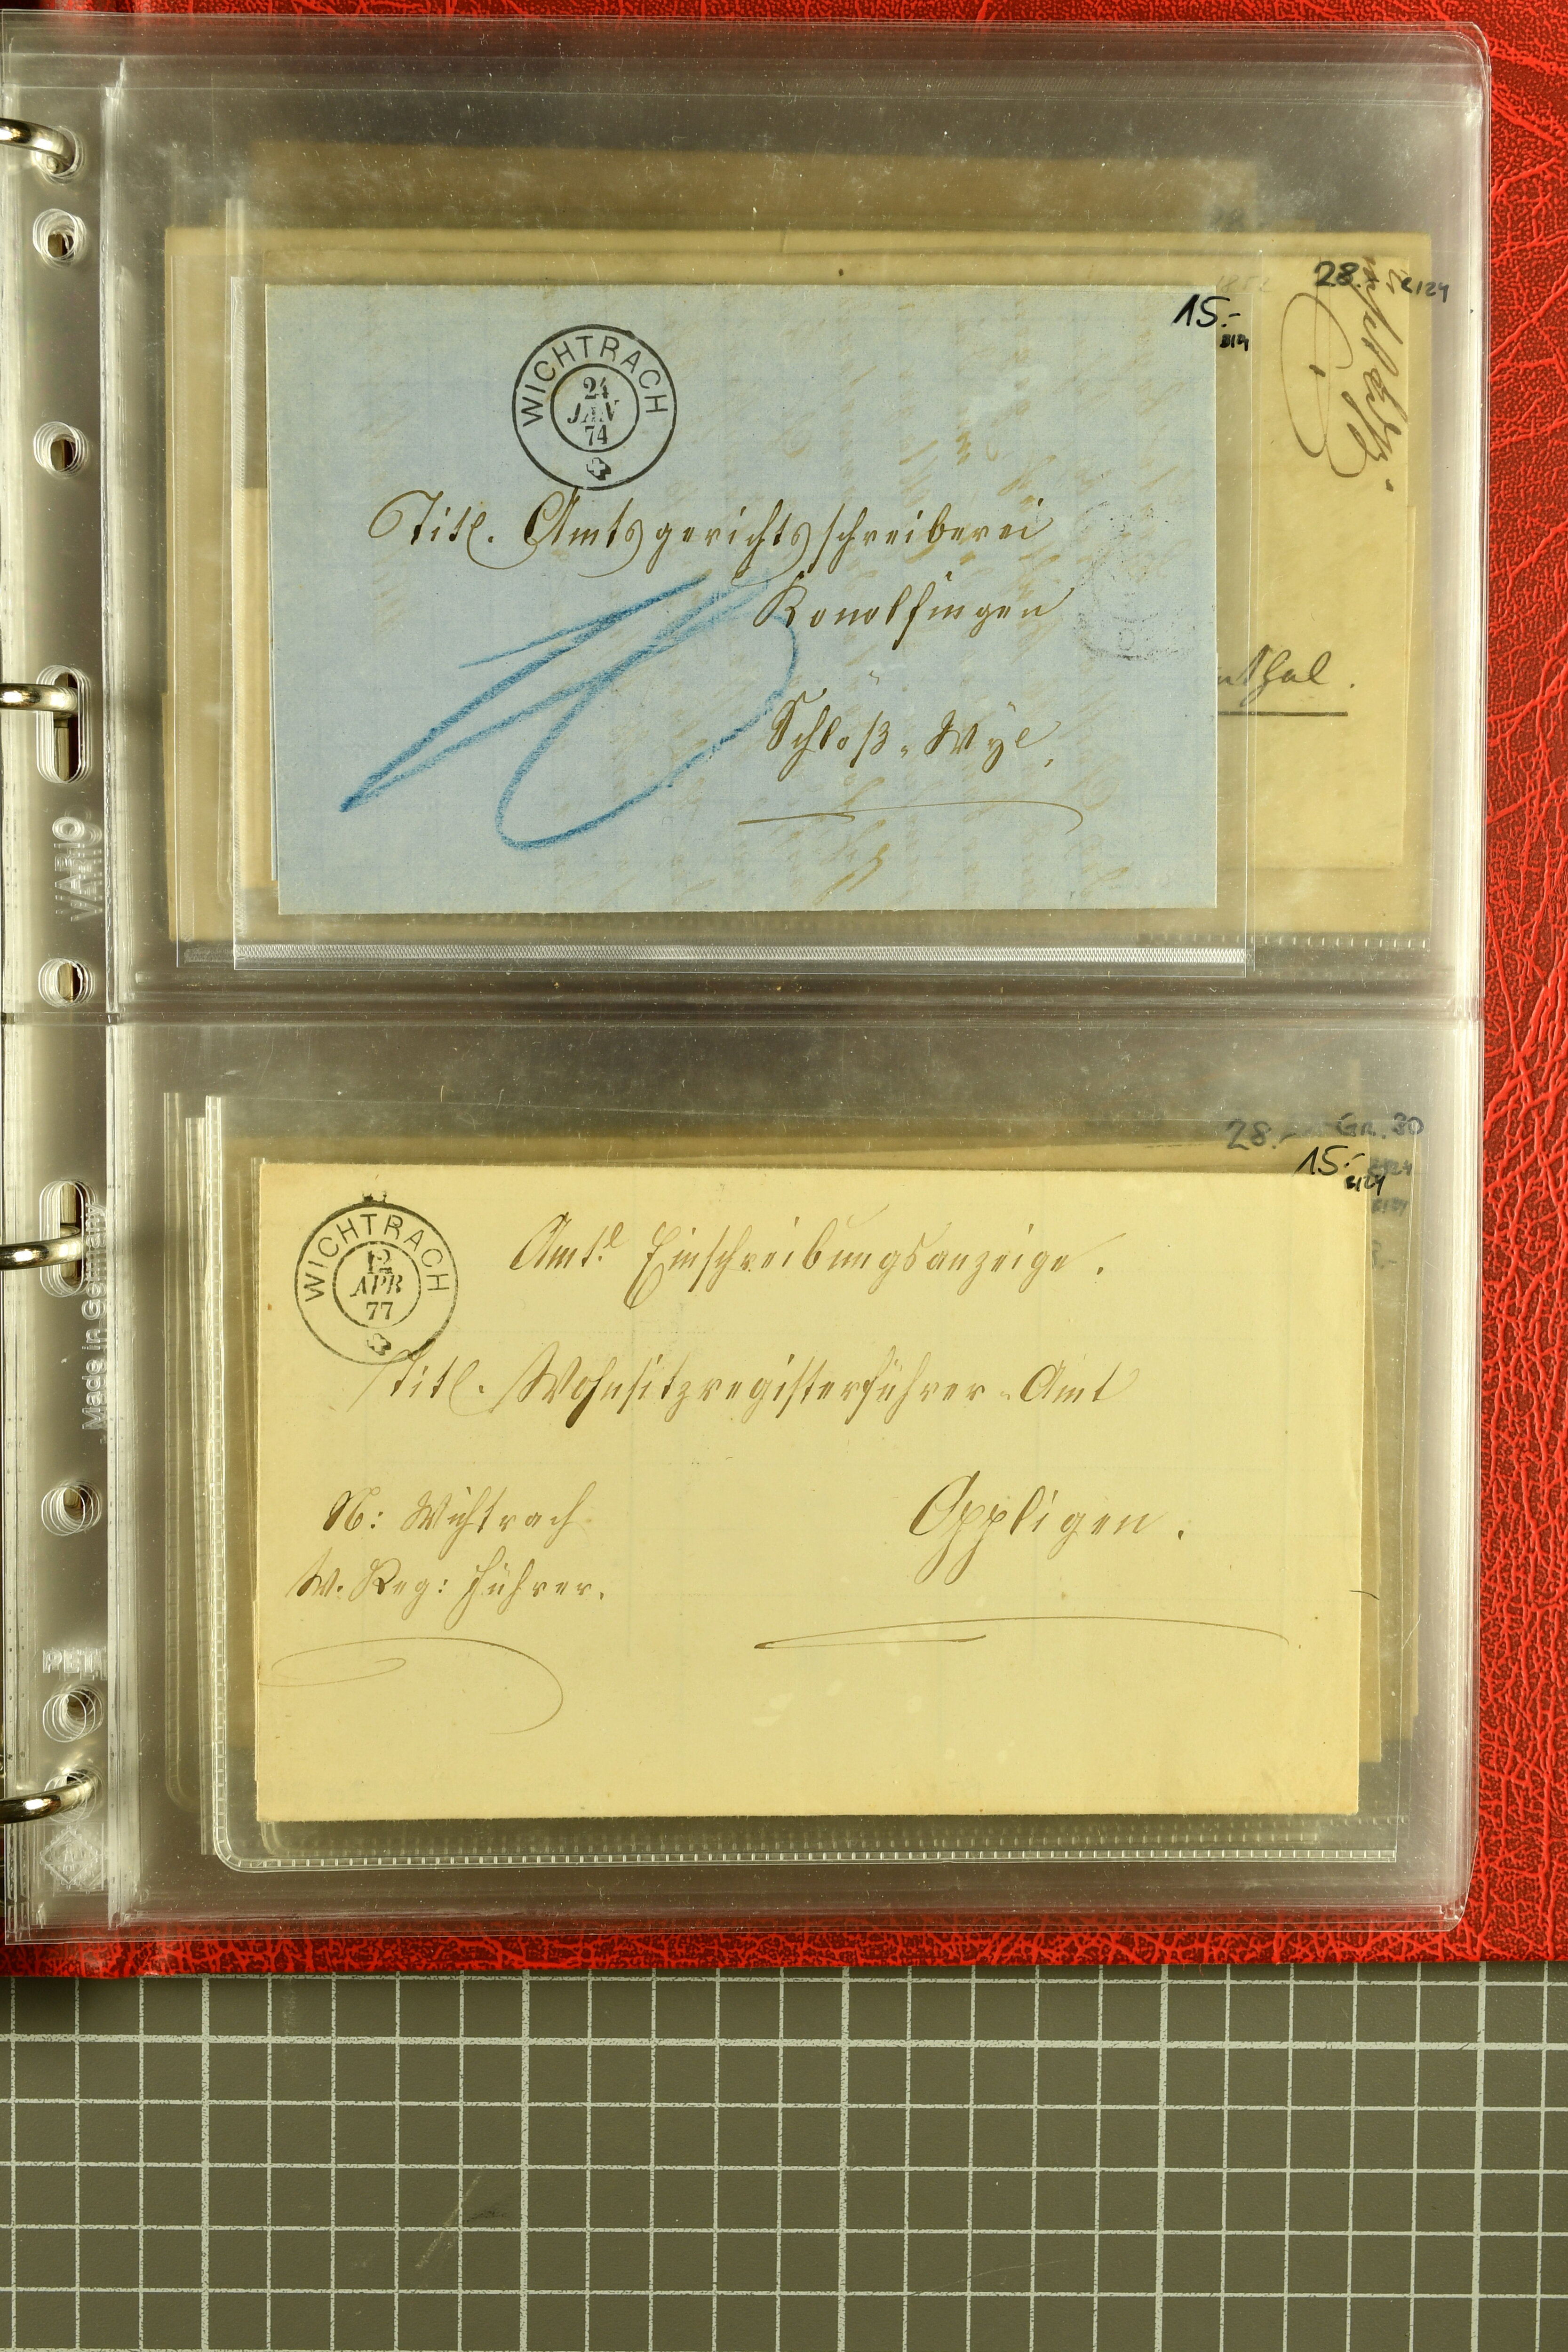 28.-
8124
15.-
8124
WICHTRACH
24
JAN
74
Titl. Amtsgerichtsschreiberei
Konolfingen
10
Schloß-Wyl.
nthal.
VARIO
28.- Gr. 30
15.-
8124
WICHTRACH
12
APR
77
Amtl. Einschreibungsanzeige.
Titl. Wohnsitzregisterführer-Amt
N: Wichtrach
Oppligen.
W. Reg: Führer.
Made in Germany